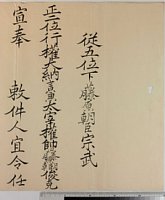 從五位下藤原朝臣宗武
正二位行權大納言兼太宰權帥藤原朝臣俊克
宣奉 敕件人宜令任